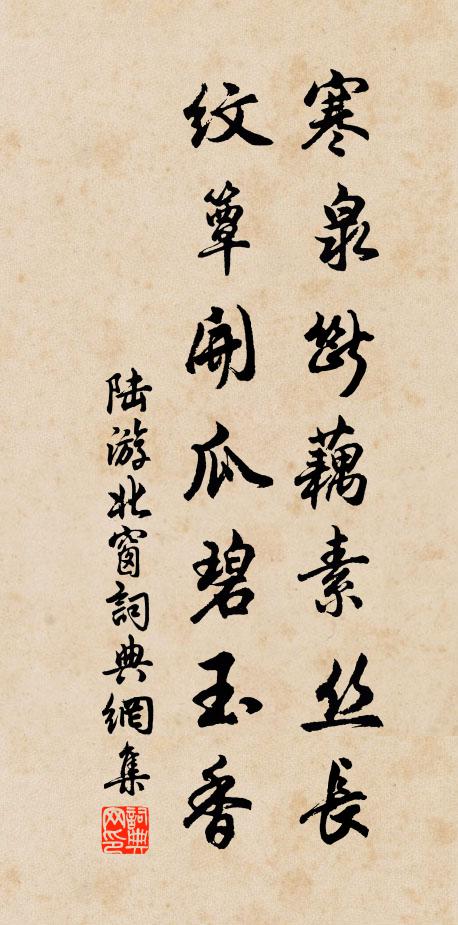 寒泉斷藕素丝長
纹簟開瓜碧玉香
陆游北窗詞典網集
詞典网印